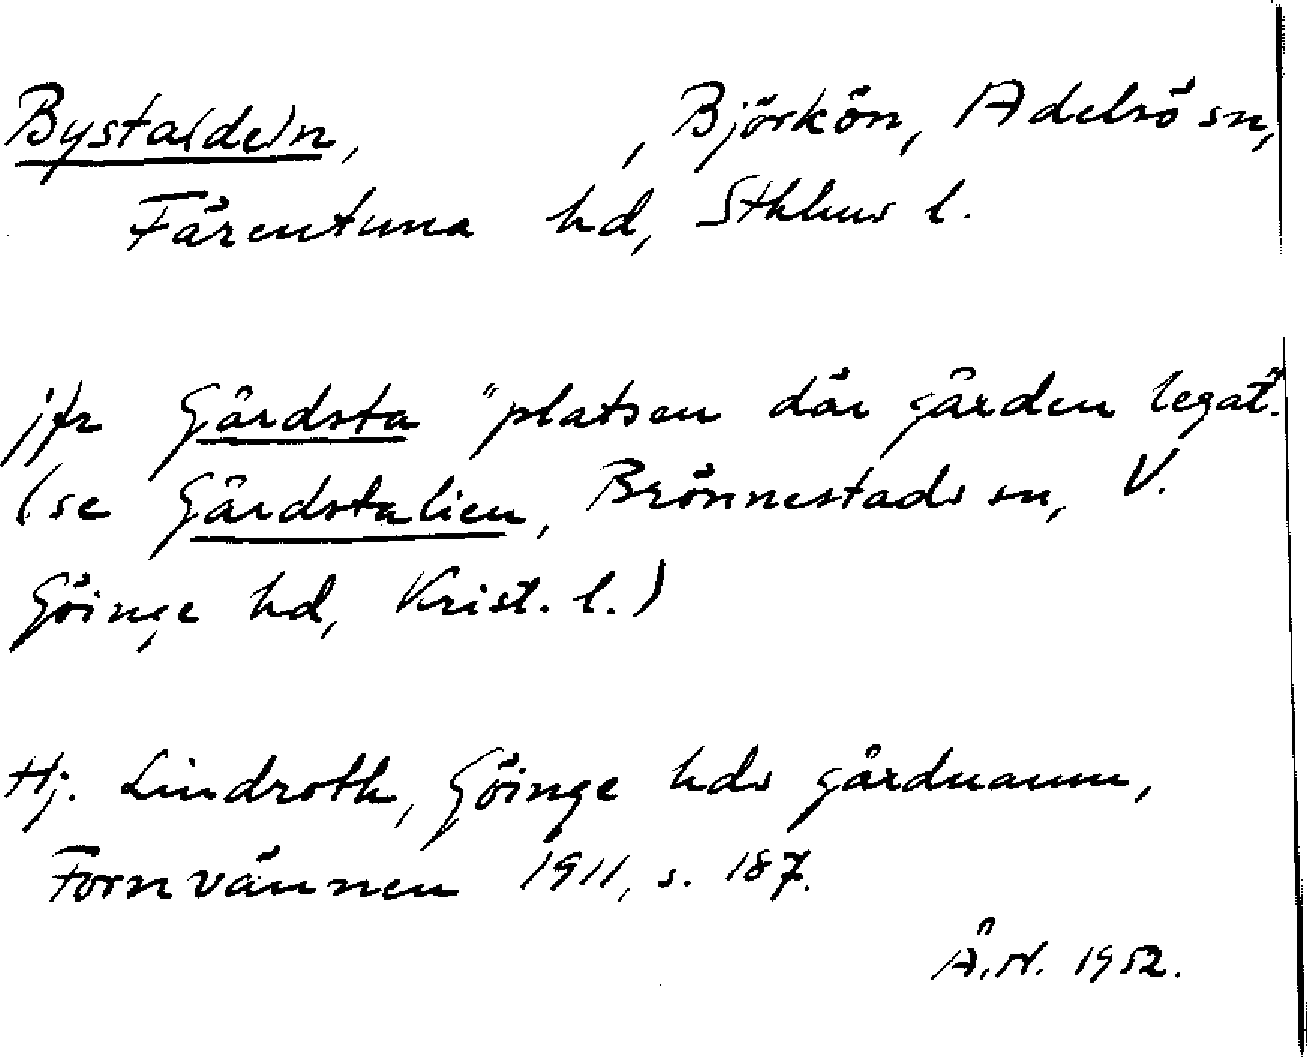 Bysta(de)n, , Björkön, Adelsö sn,
Färentuna hd, Sthlms l.
jfr Gårdsta "platsen där gården legat".
(se Gårdstalien, Brönnestads sn, V.
Göinge hd, Krist. l.)
Hj. Lindroth, Göinge hds gårdnamn,
Fornvännen 1911, s. 187.
Å.N. 1952.